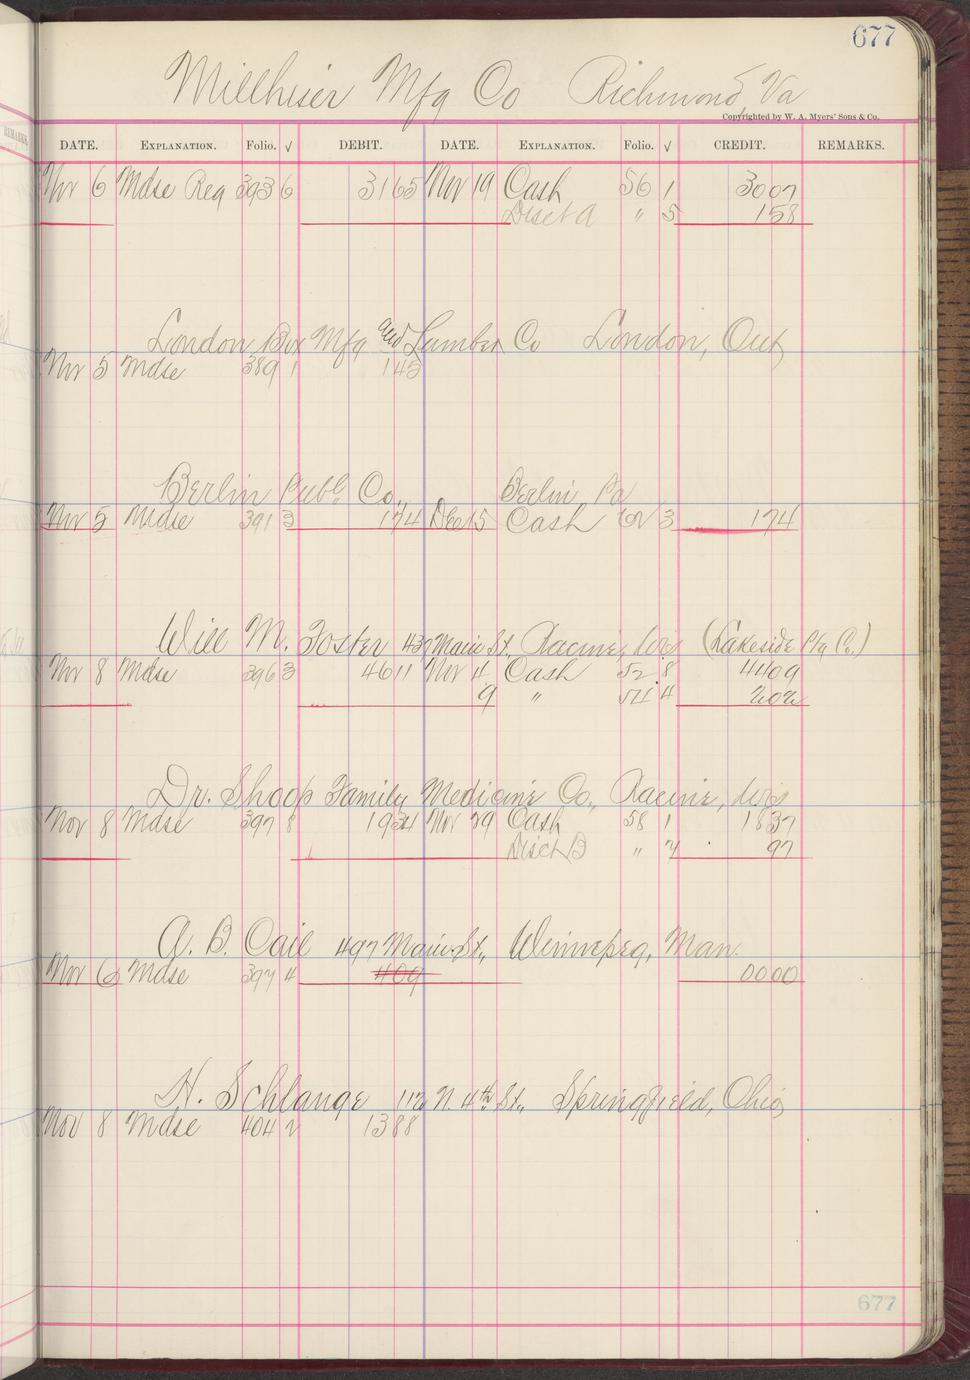 677
Millhiser Mfg Co Richmond, Va
Copyrighted by W. A. Myers' Sons & Co.
DATE. EXPLANATION. Folio. √ DEBIT. DATE. EXPLANATION. Folio. √ CREDIT. REMARKS.
Nov 6 Mdse Reg 393 6 3165 Nov 19 Cash 56 1 3007
Disct A " 5 158
London Box Mfg and Lumber Co London, Ont
Nov 5 Mdse 389 1 145
Berlin Publ. Co., Berlin, Pa
Nov 5 Mdse 391 3 174 Dec 15 Cash 3 174
Will M. Foster 437 Main St., Racine, Wis (Lakeside Co.)
Nov 8 Mdse 396 3 4611 Nov 4 Cash 52 8 4409
9 " 54 4 202
Dr. Shoop Family Medicine Co., Racine, Wis
Nov 8 Mdse 397 8 1934 Nov 29 Cash 58 1 1837
Disct B " 7 97
A. B. Cail 497 Main St., Winnepeg, Man.
Nov 6 Mdse 397 4 409 0000
H. Schlange 112 N. 4th St., Springfield, Ohio
Nov 8 Mdse 404 2 1388
677